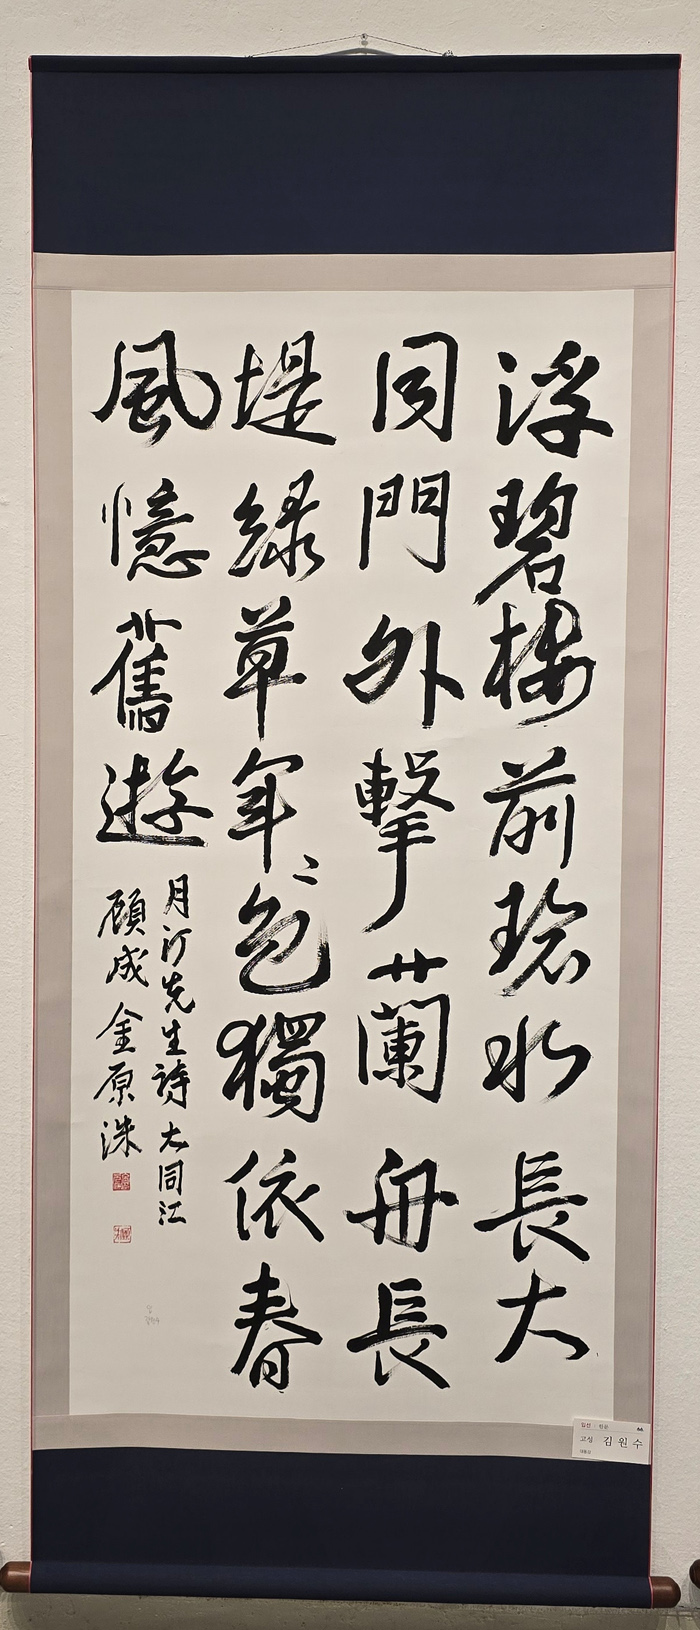 浮碧樓前碧水長大
同門外擊蘭舟長
堤綠草年〻色獨依春
風憶舊遊
月汀先生詩 大同江
顧成 金原洙
입선 한문
고성 김원수
대동강